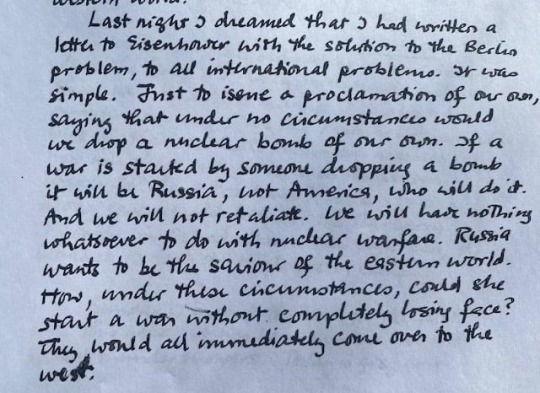 western world.
Last night I dreamed that I had written a
letter to Eisenhower with the solution to the Berlin
problem, to all international problems. It was
simple. Just to issue a proclamation of our own,
saying that under no circumstances would
we drop a nuclear bomb of our own. If a
war is started by someone dropping a bomb
it will be Russia, not America, who will do it.
And we will not retaliate. We will have nothing
whatsoever to do with nuclear warfare. Russia
wants to be the saviour of the eastern world.
How, under these circumstances, could she
start a war without completely losing face?
They would all immediately come over to the
west.